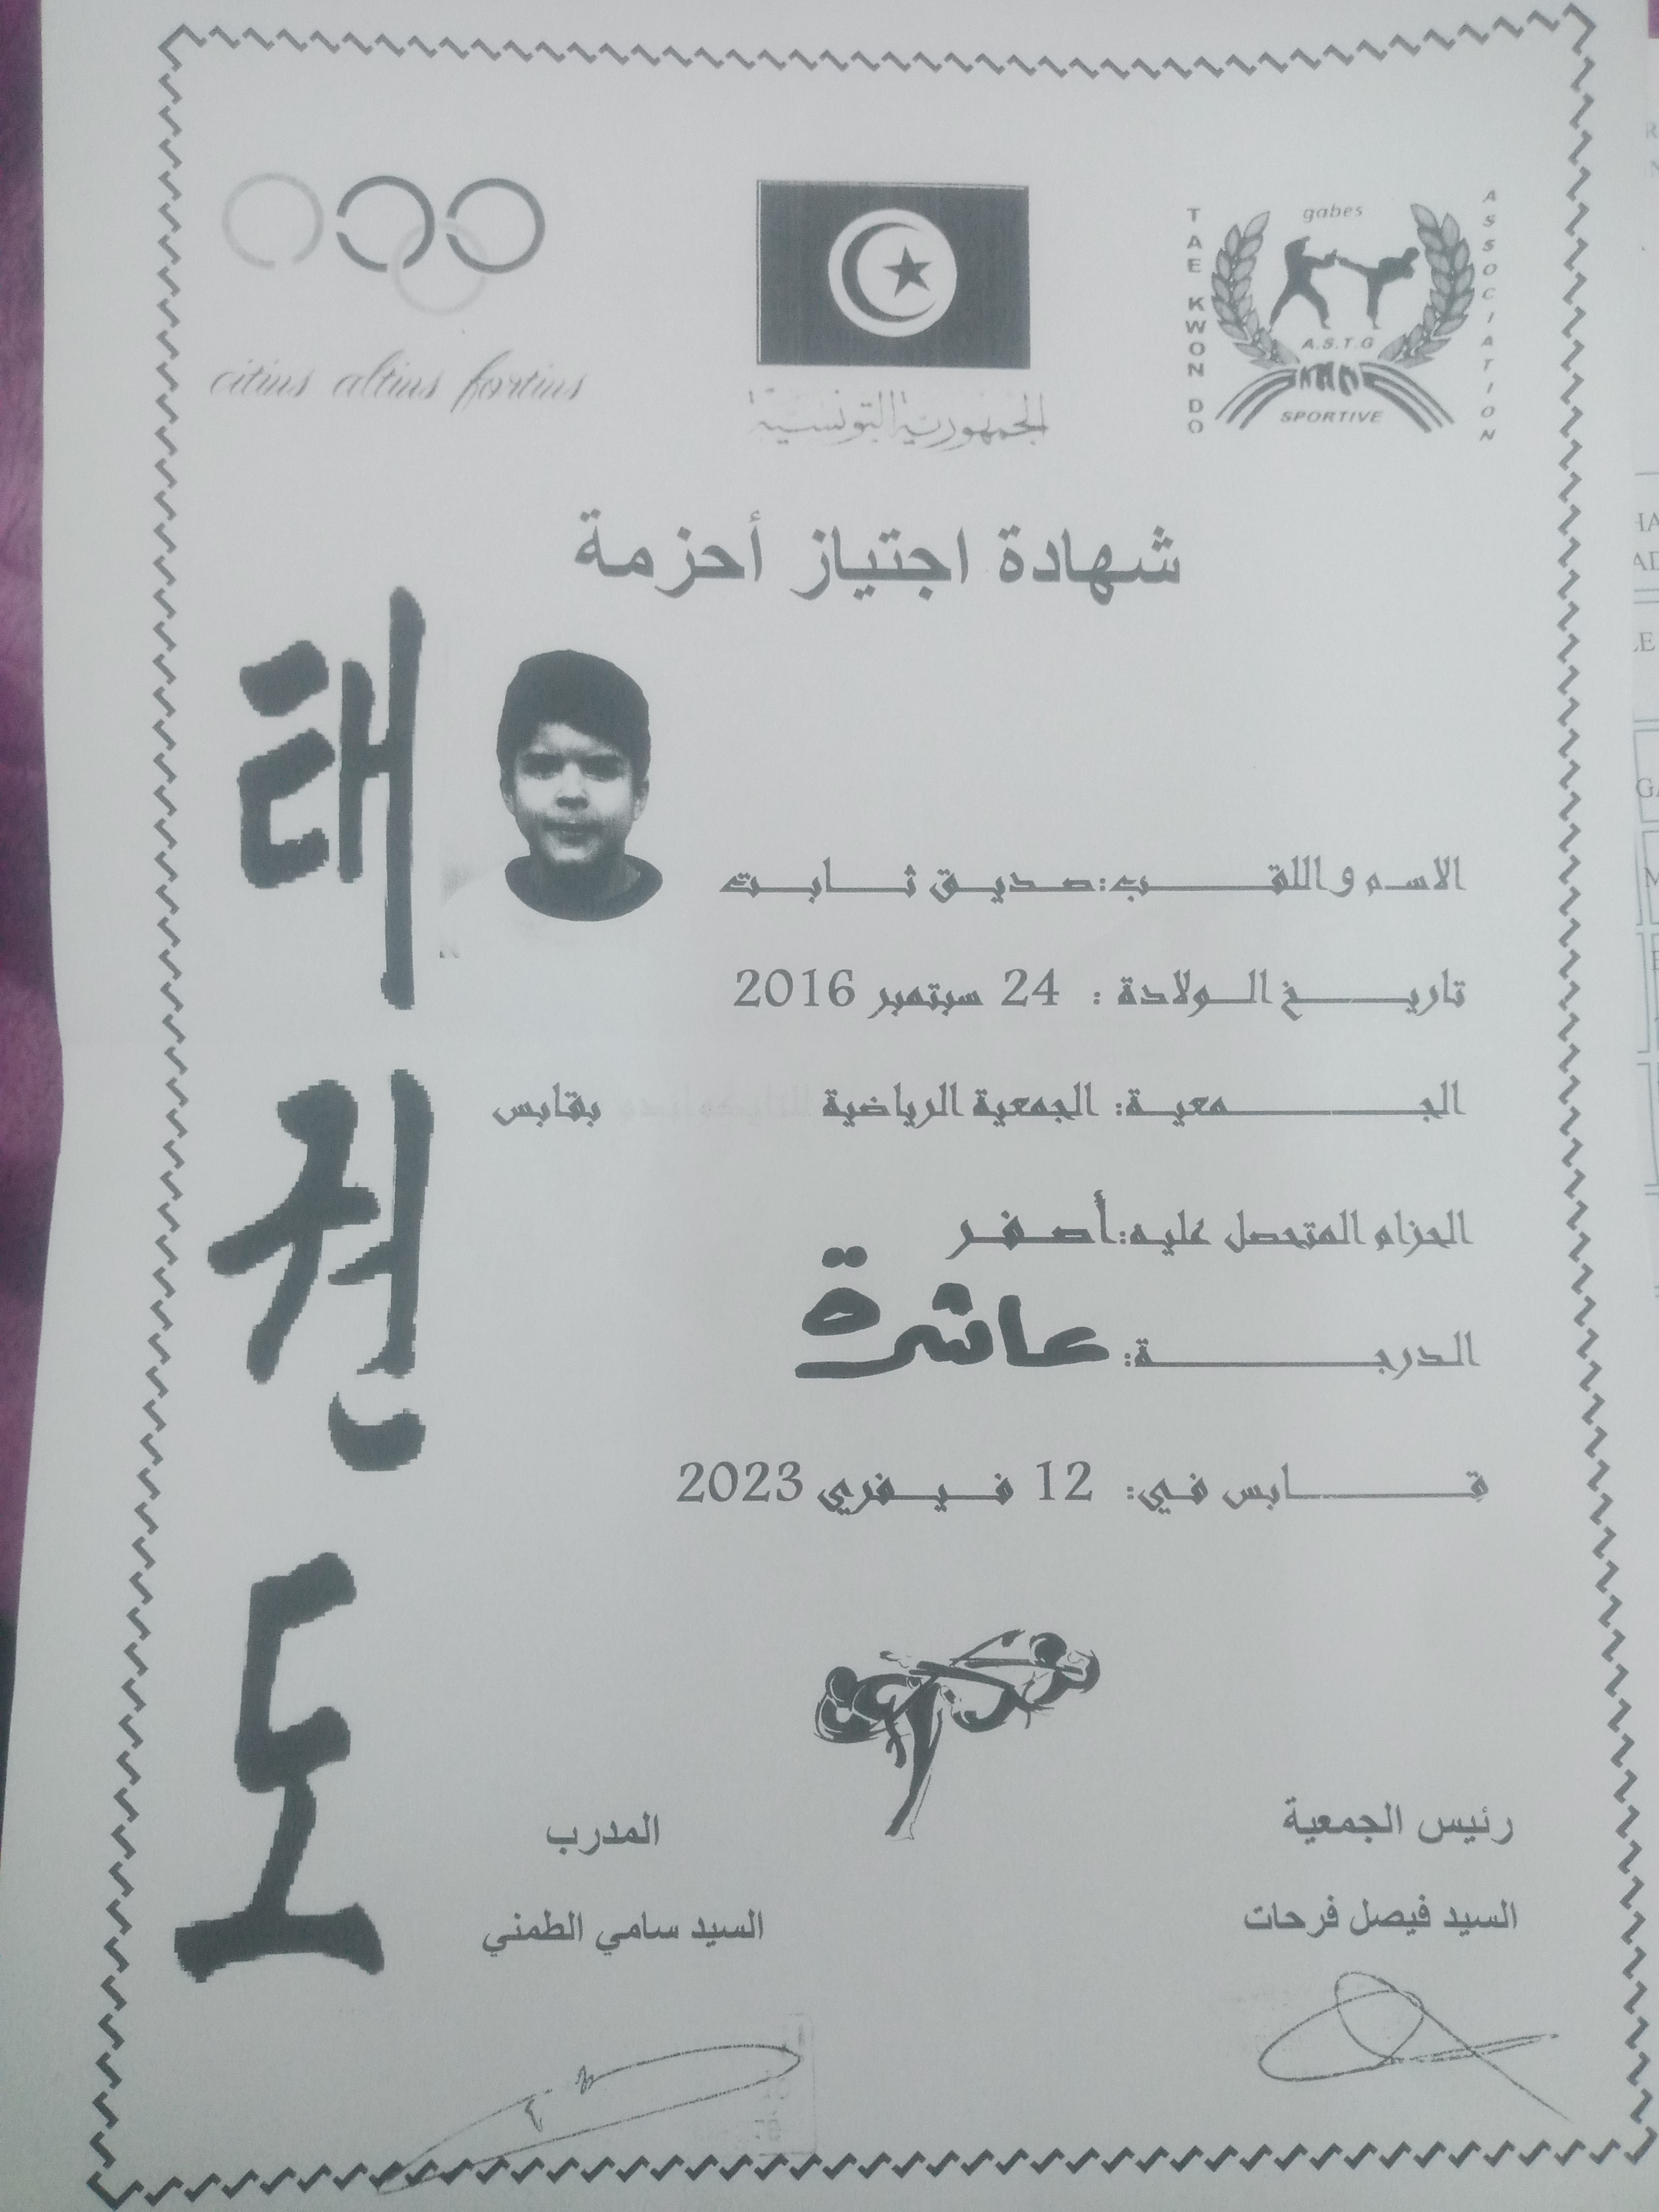 citius altius fortius
الجمهورية التونسية
gabes
TAE KWON DO
ASSOCIATION
A.S.T.G
SPORTIVE
شهادة اجتياز أحزمة
태권도
الاسم واللقب:صديق ثابت
تاريخ الولادة : 24 سبتمبر 2016
الجمعية: الجمعية الرياضية للتايكواندو بقابس
الحزام المتحصل عليه:أصفر
الدرجة: عاشرة
قابس في: 12 فيفري 2023
رئيس الجمعية
المدرب
السيد فيصل فرحات
السيد سامي الطمني